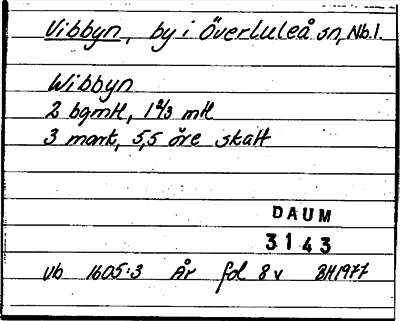 Vibbyn, by i Överluleå sn, Nb.l.
Wibbyn
2 bgmtl, 1 2/3 mtl
3 mark, 5,5 öre skatt
DAUM
3143
vb 1605:3 År fol 8v BH1977